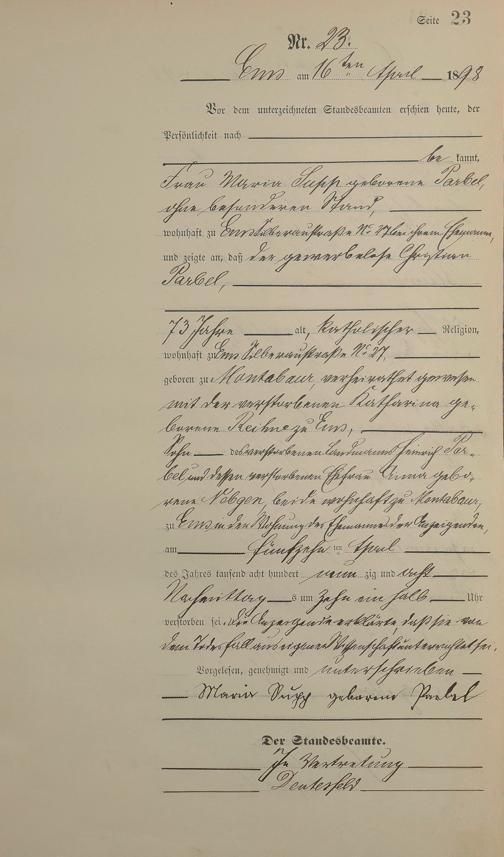 Seite 23
Nr. 23.
Ems am 16ten April 1898
Vor dem unterzeichneten Standesbeamten erschien heute, der
Persönlichkeit nach
be kannt,
Frau Maria Supp geborene Parbel,
ohne besonderen Stand,
wohnhaft zu Ems Silberaustraße No 27 bei ihrem Ehemann,
und zeigte an, daß der gewerbelose Christian
Parbel,
73 Jahre alt, katholischer Religion,
wohnhaft zu Ems Silberaustraße No 27,
geboren zu Montabaur, verheirathet gewesen
mit der verstorbenen Katharina ge-
borene zu Ems,
Sohn des verstorbenen Landmanns Heinrich Par-
bel und dessen verstorbenen Ehefrau Anna gebo-
rene beide wohnhaft zu Montabaur,
zu Ems in der Wohnung des Ehemannes der Anzeigenden,
am fünfzehnten April
des Jahres tausend acht hundert neun zig und acht
Nachmittags um zehn ein halb Uhr
verstorben sei, die Anzeigende erklärte, daß sie von
dem Todesfall aus eigener Wissenschaft unterrichtet sei.
Vorgelesen, genehmigt und unterschrieben
Maria Supp geborene Parbel
Der Standesbeamte.
In Vertretung